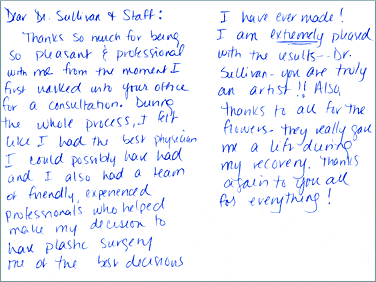 Dear Dr. Sullivan & Staff:
Thanks so much for being
so pleasant & professional
with me from the moment I
first walked into your office
for a consultation. During
the whole process, I felt
like I had the best physician
I could possibly have had
and I also had a team
of friendly, experienced
professionals who helped
make my decision to
have plastic surgery
one of the best decisions
I have ever made!
I am extremely pleased
with the results-- Dr.
Sullivan- you are truly
an artist!! Also,
thanks to all for the
flowers- they really gave
me a lift during
my recovery. Thanks
again to you all
for everything!